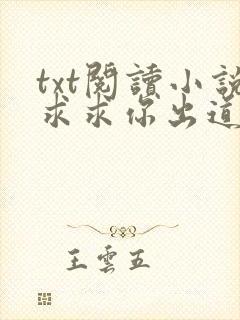 txt閱讀小說
求求你出道
王雲五